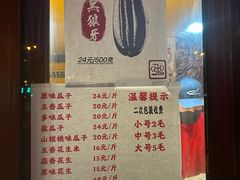 黑狼牙
24元/500克
原味瓜子 24元/斤
五香瓜子 20元/斤
多味瓜子 20元/斤
盐瓜子 24元/斤
山核桃味瓜子 20元/斤
五香花生米 16元/斤
蒜味花生 15元/斤
原味花生 15元/斤
温馨提示
二次包装收费
小号2毛
中号3毛
大号5毛